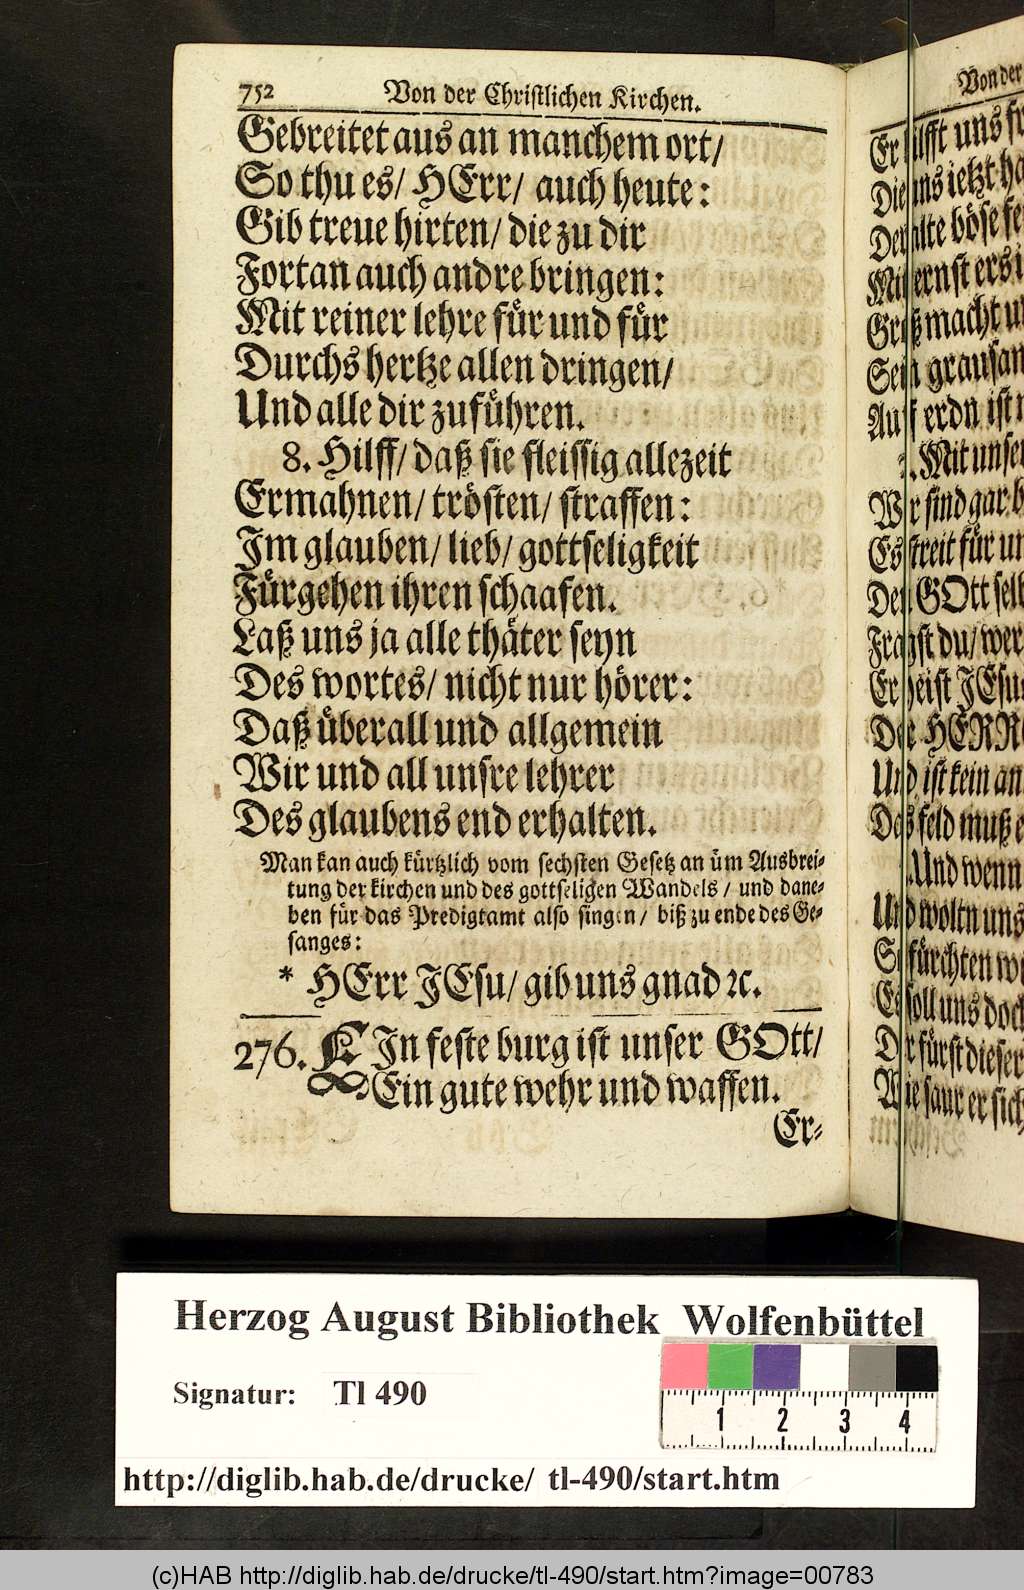 752 Von der Christlichen Kirchen.
Gebreitet aus an manchem ort/
So thu es/ HErr/ auch heute:
Gib treue hirten/ die zu dir
Fortan auch andre bringen:
Mit reiner lehre für und für
Durchs hertze allen dringen/
Und alle dir zuführen.
8. Hilff/ daß sie fleissig allezeit
Ermahnen/ trösten/ straffen:
Im glauben/ lieb/ gottseligkeit
Fürgehen ihren schaafen.
Laß uns ja alle thäter seyn
Des wortes/ nicht nur hörer:
Daß überall und allgemein
Wir und all unsre lehrer
Des glaubens end erhalten.
Man kan auch kürtzlich vom sechsten Gesetz an üm Ausbrei-
tung der kirchen und des gottseligen Wandels/ und dane-
ben für das Predigtamt also singen/ biß zu ende des Ge-
sanges:
* HErr JEsu/ gib uns gnad ꝛc.
276. EIn feste burg ist unser GOtt/
Ein gute wehr und waffen.
Er-
Von der
Er hilfft uns
Die uns ietzt
Der alte böse
Mit ernst ers
Groß macht
Sein
Auff erdn ist
Mit
Wir sind gar
Es streit für
Den GOtt
Fragst du/ wer
Er heist
Der
Und ist kein
Das feld muß
Und wenn
Und woltn uns
So fürchten
Es soll uns doch
Der fürst dieser
Wie saur er sich
Herzog August Bibliothek Wolfenbüttel
Signatur: Tl 490
1 2 3 4
http://diglib.hab.de/drucke/ tl-490/start.htm
(c)HAB http://diglib.hab.de/drucke/tl-490/start.htm?image=00783